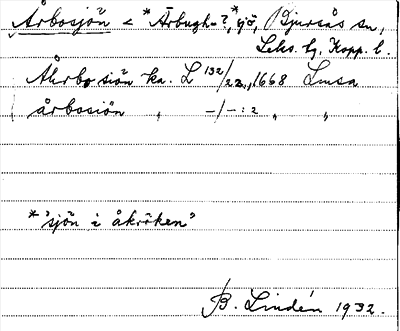 Årbosjön < *Årbugh-?, *sjö, Bjursås sn,
Leks. tg, Kopp. l.
Åhrbo siön ka. L 132/22, 1668 Lmsa
årbosiön " -/-:2 " "
*"sjön i åkröken"
B. Lindén 1932.